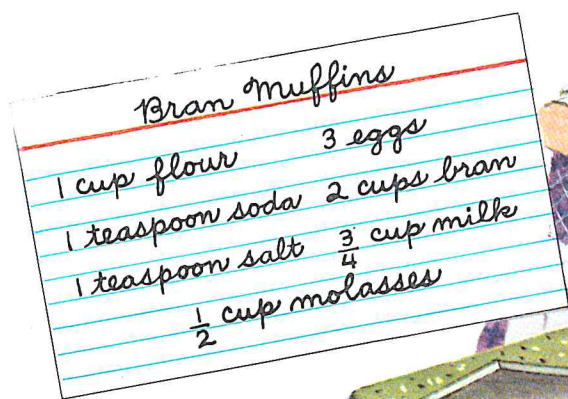 Bran Muffins
1 cup flour 3 eggs
1 teaspoon soda 2 cups bran
1 teaspoon salt 3/4 cup milk
1/2 cup molasses